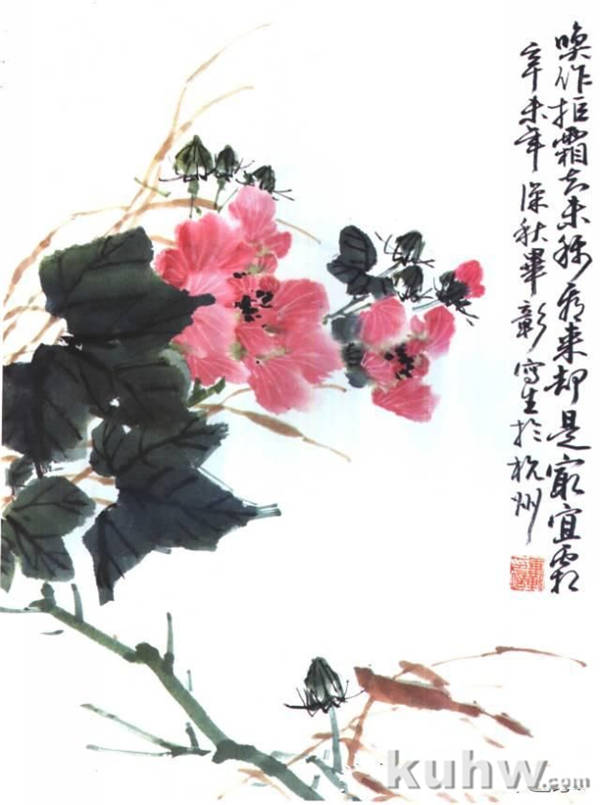 唤作拒霜知未称看来却是最宜霜
辛未年深秋毕彰写生於杭州
kuhw.com